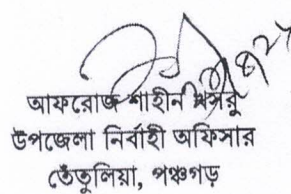 আফরোজ শাহীন খসরু
উপজেলা নির্বাহী অফিসার
তেঁতুলিয়া, পঞ্চগড়